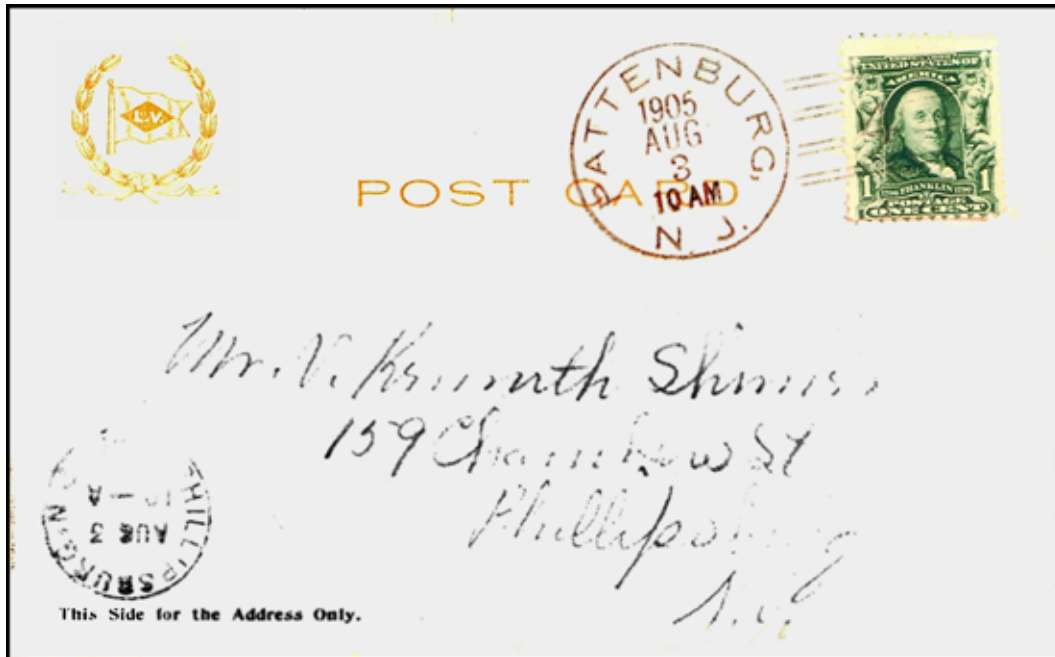 L.V.
POST CARD
PATTENBURG,
1905
AUG
3
10 AM
N. J.
UNITED STATES OF
AMERICA
1 FRANKLIN 1
POSTAGE
ONE CENT
Mr. V. Kenneth
159 Chambers St
Phillipsburg
N.J.
PHILLIPSBURG N
AUG 3
A
This Side for the Address Only.